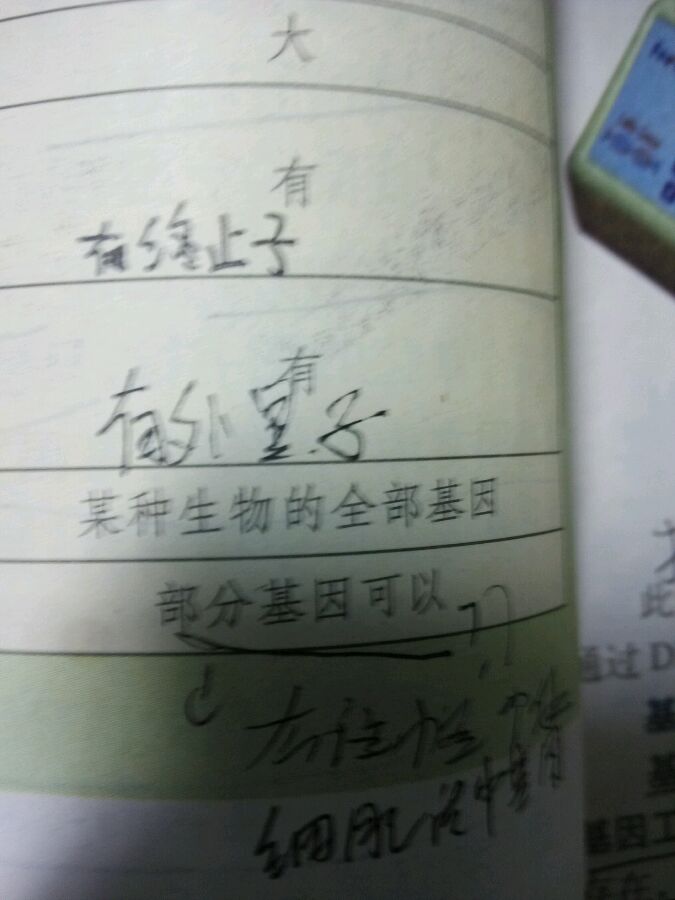 大
有
有终止子
有
有外显子
某种生物的全部基因
部分基因可以
??
此
通过 D
基
基
基因工
存在.